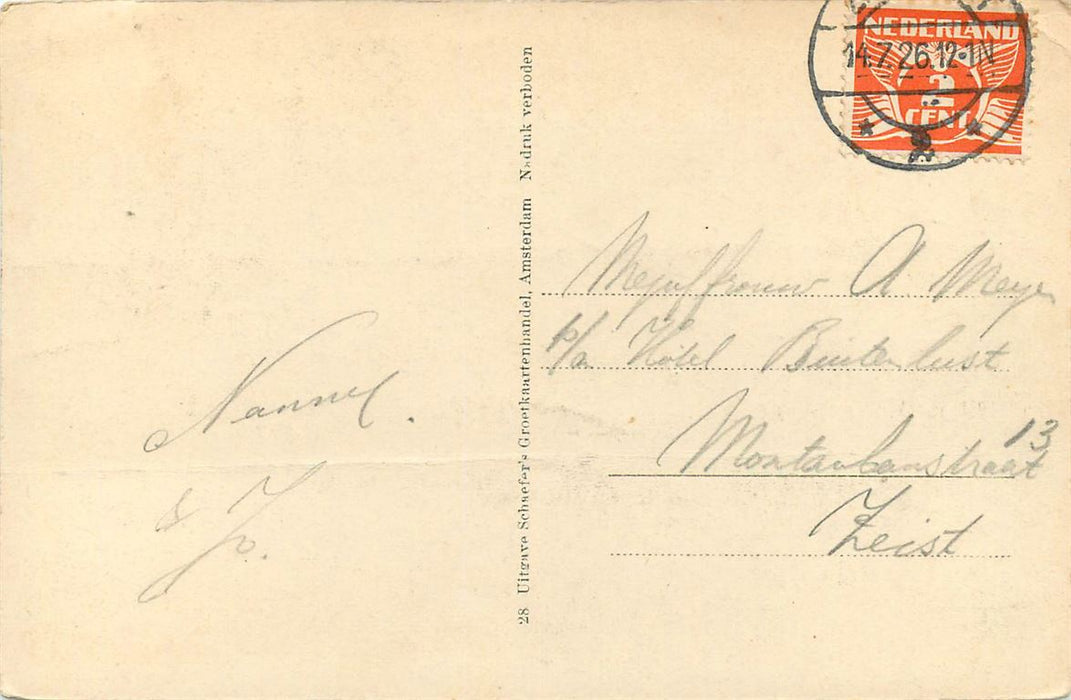 NEDERLAND
2
CENT
14.7.26.12-1N
28 Uitgave Schaefer's Groetkaartenhandel, Amsterdam Nadruk verboden
Mejuffrouw A. Meyer
p/a Hotel Buitenlust
Montaubanstraat 13
Zeist
Nannel.
& Jo.